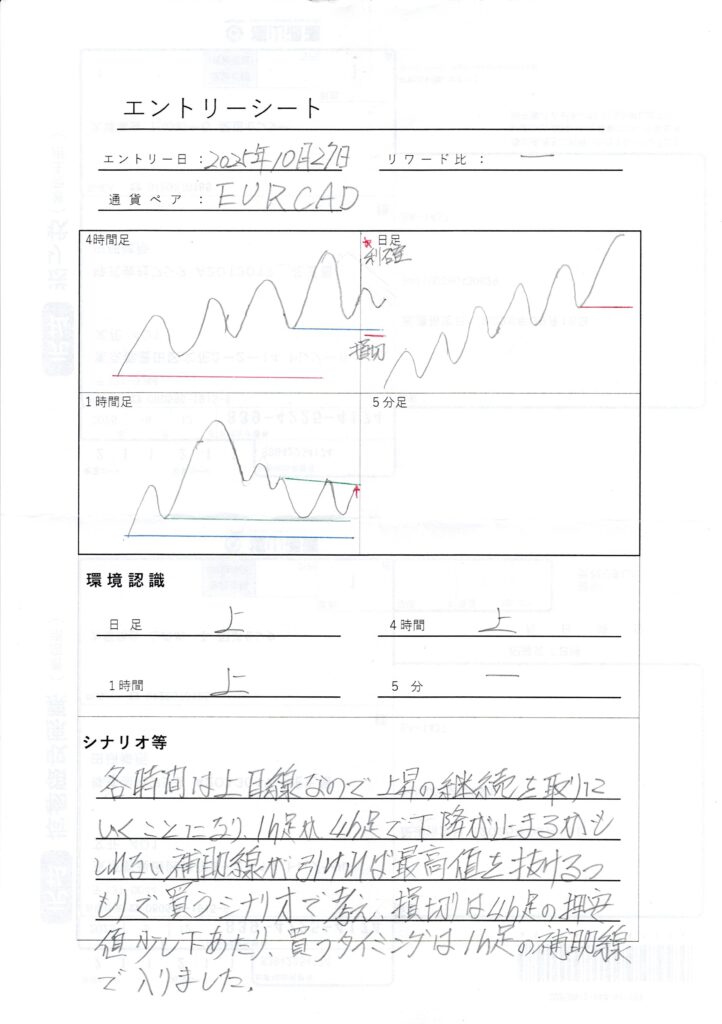 エントリーシート
エントリー日：2025年10月27日
リワード比：ー
通貨ペア：EURCAD
4時間足
日足
利確
損切
1時間足
5分足
環境認識
日足 上
4時間 上
1時間 上
5分 ー
シナリオ等
各時間は上目線なので上昇の継続を取りに
いくことになり、1h足か4h足で下降が止まるかも
しれない補助線が引ければ最高値を抜けるつ
もりで買うシナリオで考え、損切は4h足の押安
値少し下あたり、買うタイミングは1h足の補助線
で入りました。